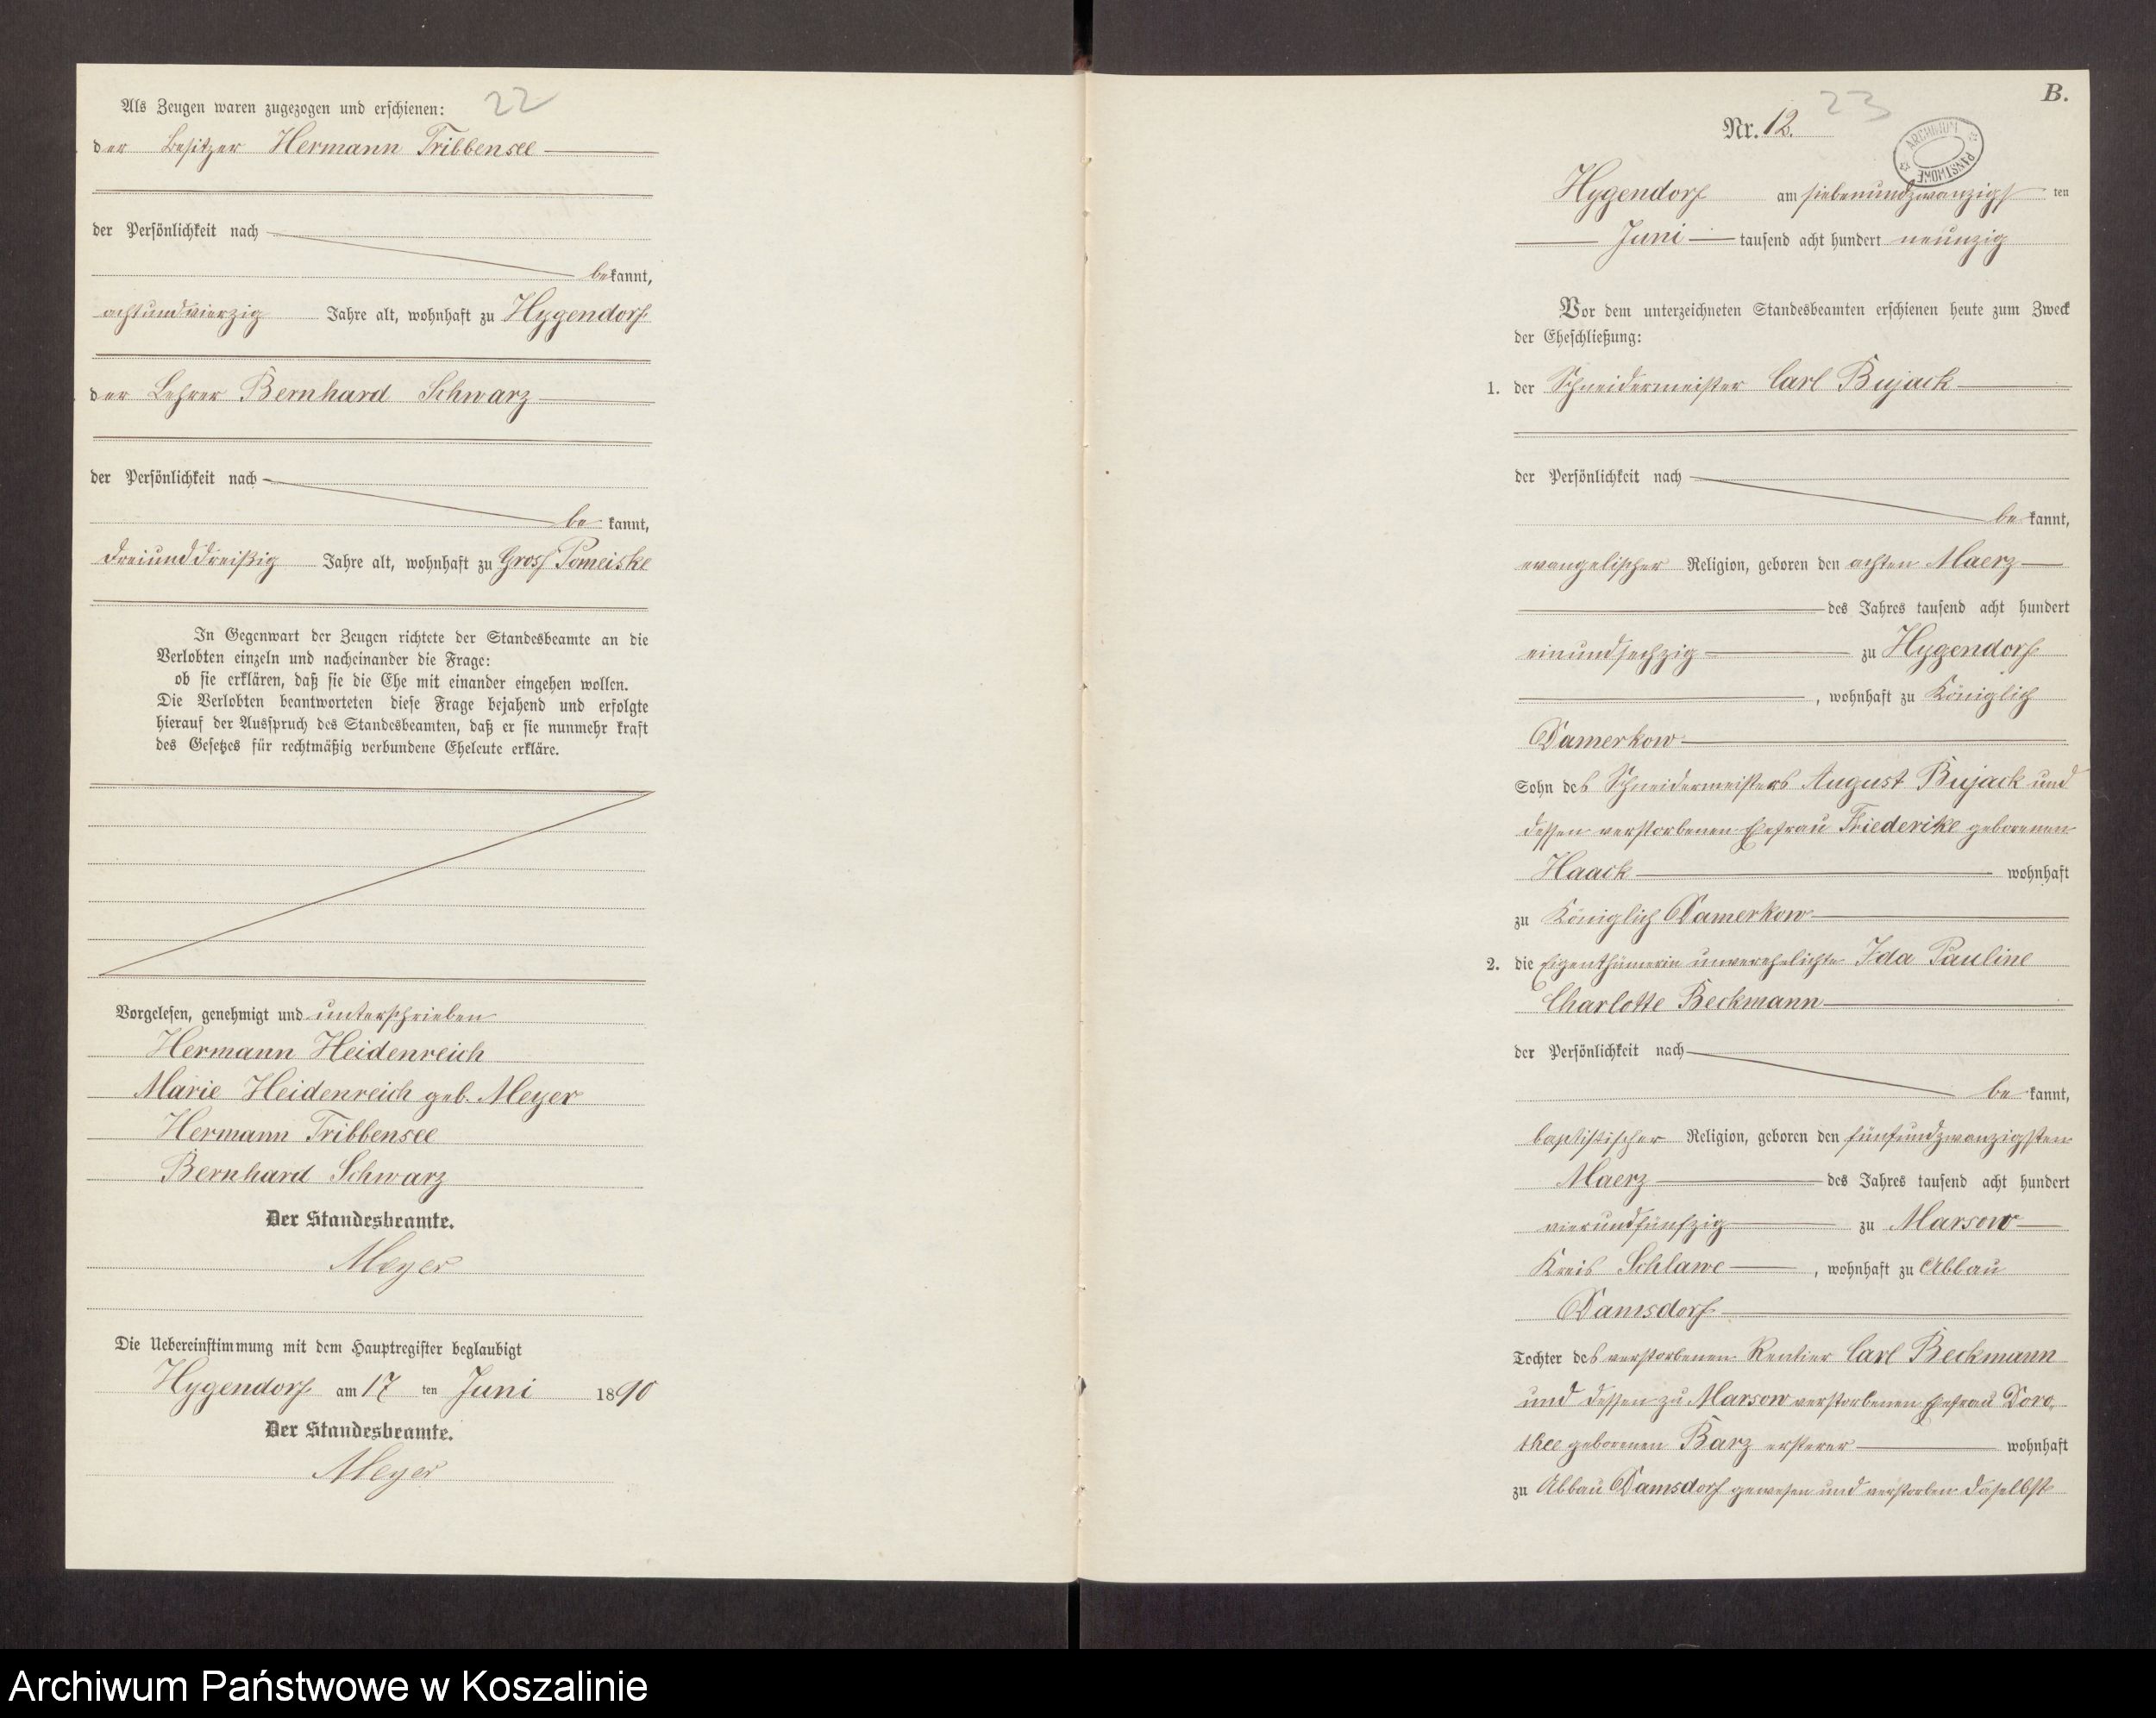 22
Als Zeugen waren zugezogen und erschienen:
der Besitzer Hermann Tribbensee
der Persönlichkeit nach
bekannt,
achtundvierzig Jahre alt, wohnhaft zu Hygendorf
der Lehrer Bernhard Schwarz
der Persönlichkeit nach
be kannt,
dreiunddreißig Jahre alt, wohnhaft zu Gross Pomeiske
In Gegenwart der Zeugen richtete der Standesbeamte an die
Verlobten einzeln und nacheinander die Frage:
ob sie erklären, daß sie die Ehe mit einander eingehen wollen.
Die Verlobten beantworteten diese Frage bejahend und erfolgte
hierauf der Ausspruch des Standesbeamten, daß er sie nunmehr kraft
des Gesetzes für rechtmäßig verbundene Eheleute erkläre.
Vorgelesen, genehmigt und unterschrieben
Hermann Heidenreich
Marie Heidenreich geb. Meyer
Hermann Tribbensee
Bernhard Schwarz
Der Standesbeamte.
Meyer
Die Uebereinstimmung mit dem Hauptregister beglaubigt
Hygendorf am 17 ten Juni 1890
Der Standesbeamte.
Meyer
B.
23
Nr. 12.
ARCHIWUM PAŃSTWOWE
Hygendorf am siebenundzwanzigs ten
Juni tausend acht hundert neunzig
Vor dem unterzeichneten Standesbeamten erschienen heute zum Zweck
der Eheschließung:
1. der Schneidermeister Carl Bujack
der Persönlichkeit nach
be kannt,
evangelischer Religion, geboren den achten Maerz
des Jahres tausend acht hundert
einundsechzig zu Hygendorf
, wohnhaft zu Königlich
Damerkow
Sohn des Schneidermeisters August Bujack und
dessen verstorbenen Ehefrau Friederike geborenen
Haack wohnhaft
zu Königlich Damerkow
2. die Eigenthümerin unverehelichte Ida Pauline
Charlotte Beckmann
der Persönlichkeit nach
be kannt,
baptistischer Religion, geboren den fünfundzwanzigsten
Maerz des Jahres tausend acht hundert
vierundfünfzig zu Marsow
Kreis Schlawe , wohnhaft zu Abbau
Damsdorf
Tochter des verstorbenen Rentier Carl Beckmann
und dessen zu Marsow verstorbenen Ehefrau Doro-
thee geborenen Barz ersterer wohnhaft
zu Abbau Damsdorf gewesen und verstorben daselbst
Archiwum Państwowe w Koszalinie